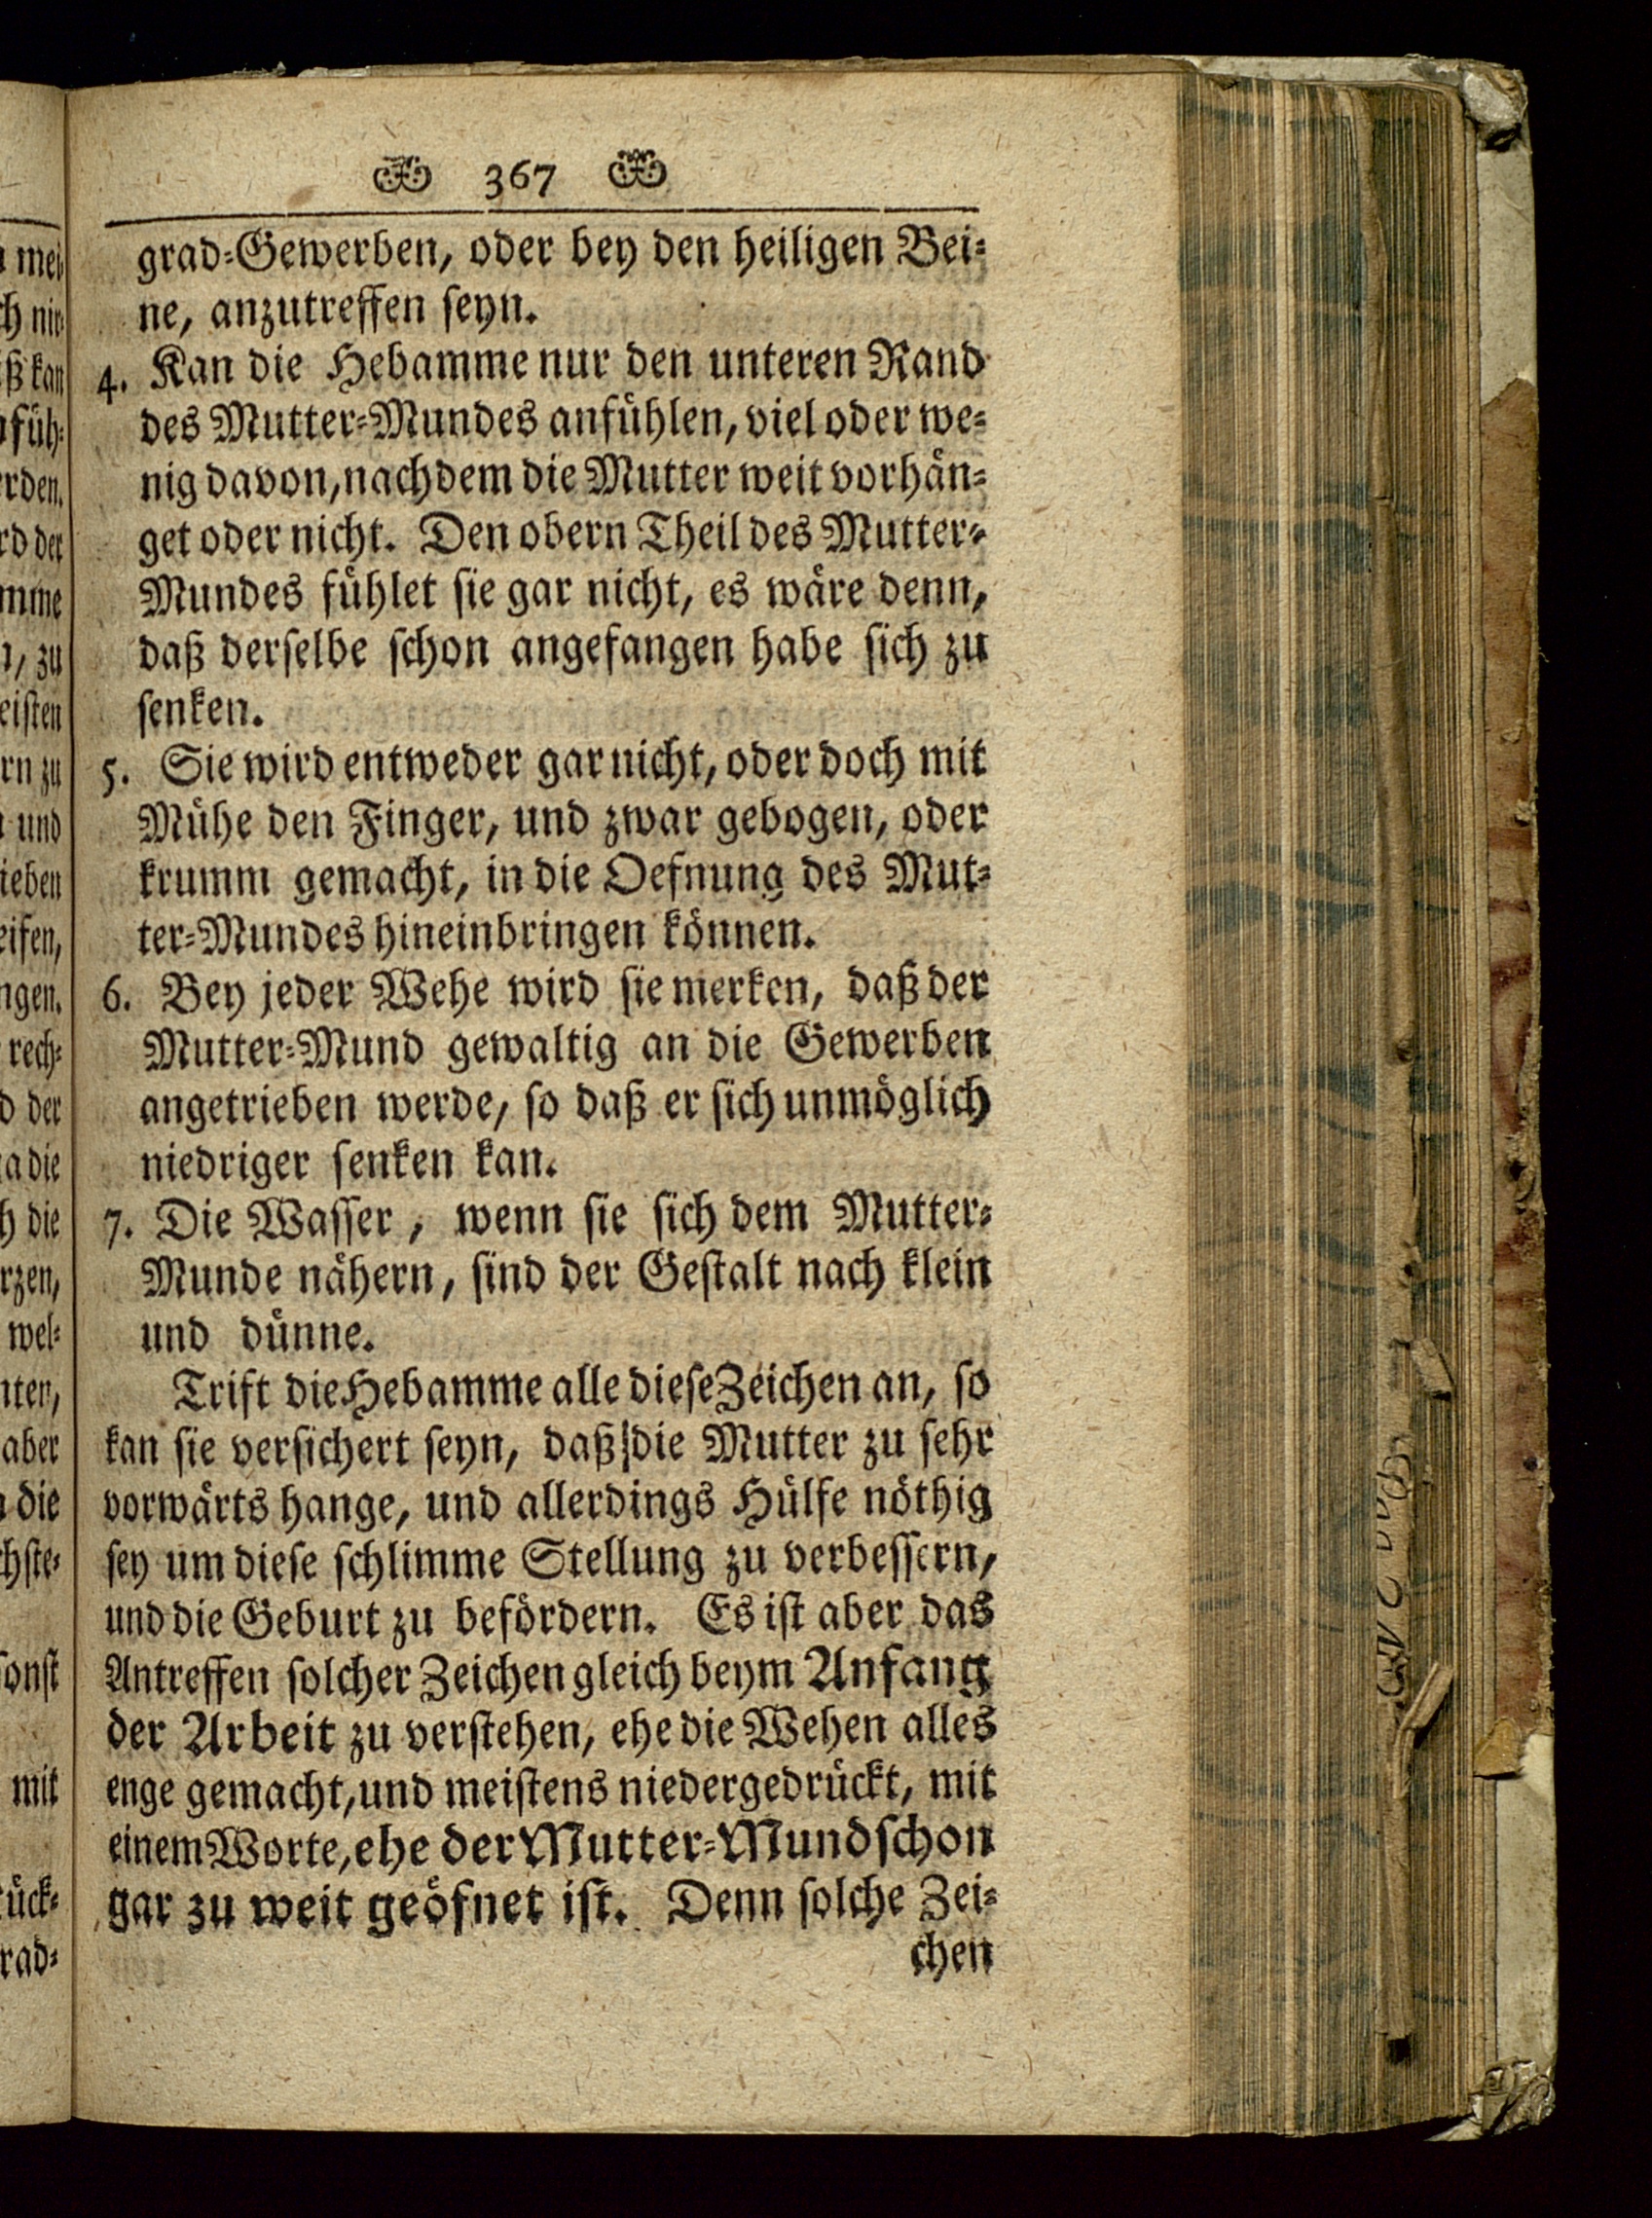 367
grad-Gewerben, oder bey den heiligen Bei-
ne, anzutreffen seyn.
4. Kan die Hebamme nur den unteren Rand
des Mutter-Mundes anfühlen, viel oder we-
nig davon, nachdem die Mutter weit vorhän-
get oder nicht. Den obern Theil des Mutter-
Mundes fühlet sie gar nicht, es wäre denn,
daß derselbe schon angefangen habe sich zu
senken.
5. Sie wird entweder gar nicht, oder doch mit
Mühe den Finger, und zwar gebogen, oder
krumm gemacht, in die Oefnung des Mut-
ter-Mundes hineinbringen können.
6. Bey jeder Wehe wird sie merken, daß der
Mutter-Mund gewaltig an die Gewerben
angetrieben werde, so daß er sich unmöglich
niedriger senken kan.
7. Die Wasser, wenn sie sich dem Mutter-
Munde nähern, sind der Gestalt nach klein
und dünne.
Trift die Hebamme alle diese Zeichen an, so
kan sie versichert seyn, daß die Mutter zu sehr
vorwärts hange, und allerdings Hülfe nöthig
sey um diese schlimme Stellung zu verbessern,
und die Geburt zu befördern. Es ist aber das
Antreffen solcher Zeichen gleich beym Anfang
der Arbeit zu verstehen, ehe die Wehen alles
enge gemacht, und meistens niedergedrückt, mit
einem Worte, ehe der Mutter-Mund schon
gar zu weit geöfnet ist. Denn solche Zei-
chen